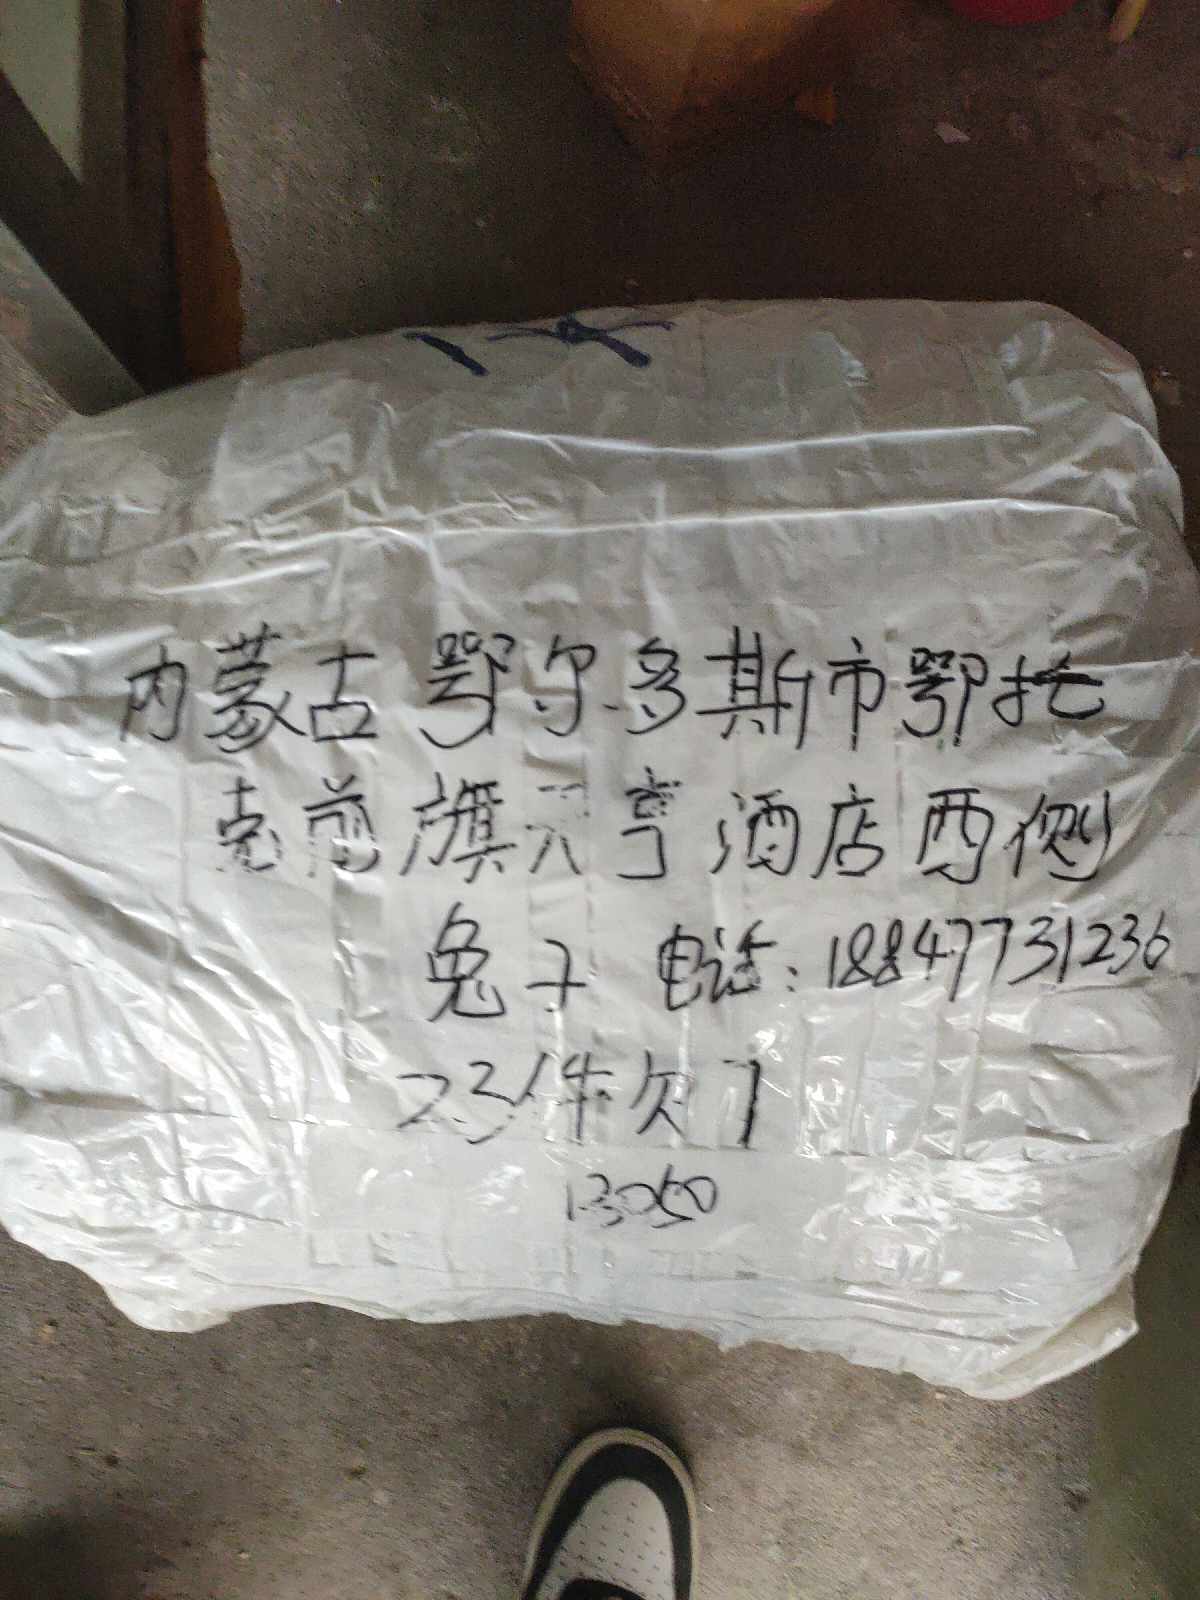 内蒙古鄂尔多斯市鄂托
克前旗天亨酒店西侧
兔子 电话:18847731236
23件欠1
13050